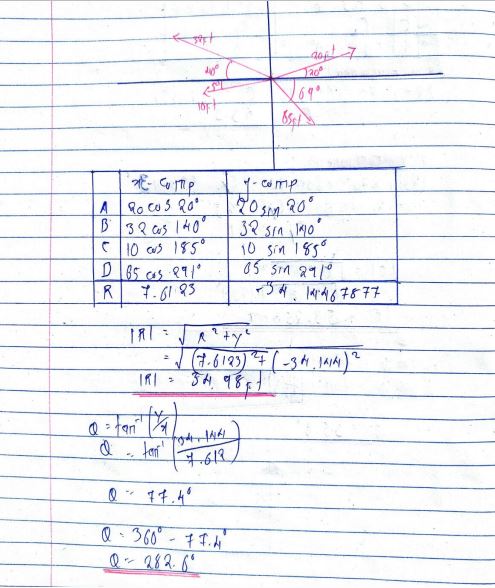 32ft
20ft
40°
20°
5°
69°
10ft
65ft
x-comp y-comp
A 20 cos 20° 20 sin 20°
B 32 cos 140° 32 sin 140°
C 10 cos 185° 10 sin 185°
D 65 cos 291° 65 sin 291°
R 7.6123 -34.14467877
|R| = √x²+y²
= √(7.6123)²+(-34.144)²
|R| = 34.98ft
Q = tan⁻¹(y/x)
Q = tan⁻¹(34.144/7.612)
Q = 77.4°
Q = 360° - 77.4°
Q = 282.6°